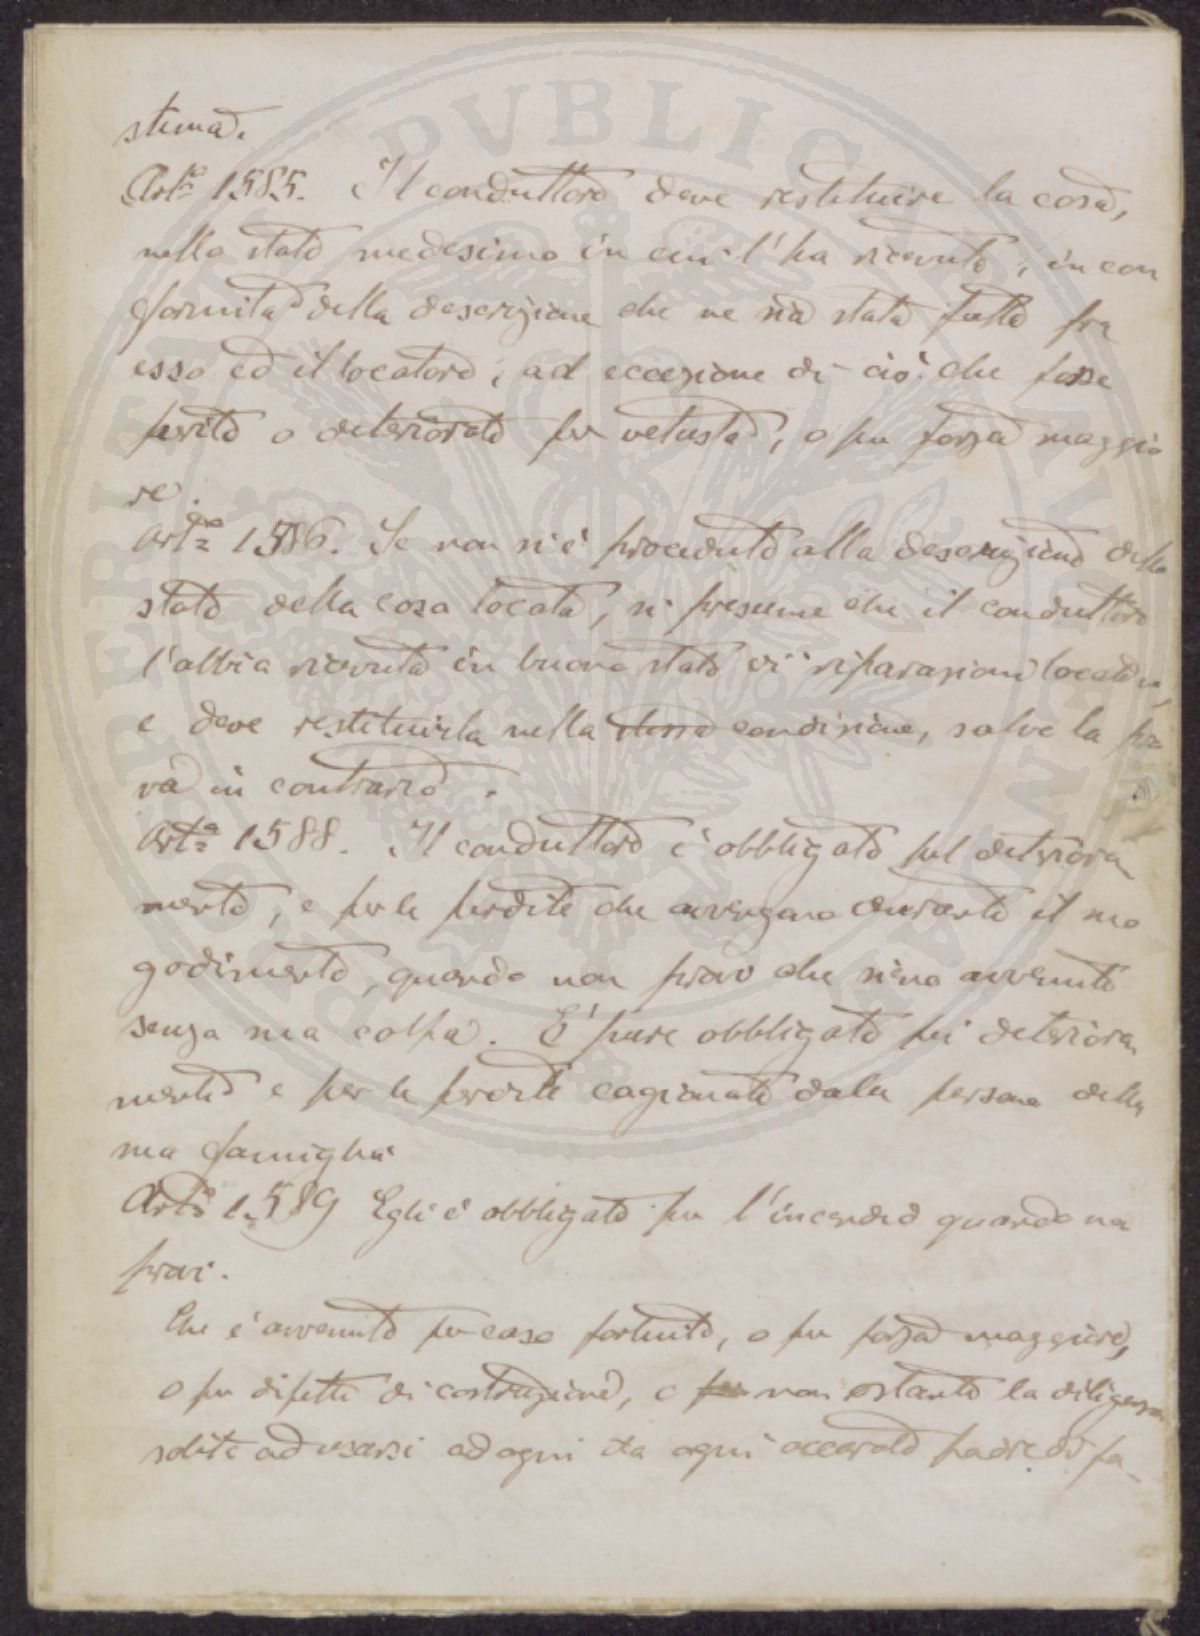 stima.
Artº 1585. Il conduttore deve restituire la cosa,
nello stato medesimo in cui l'ha ricevuto, in con
formità della descrizione che ne sia stata fatta fra
esso ed il locatore, ad eccezione di ciò che fosse
perito o deteriorato per vetustà, o per forza maggio
re.
Artº 1586. Se non si è proceduto alla descrizione dello
stato della cosa locata, si presume che il conduttore
l'abbia ricevuta in buono stato di riparazioni locative,
e deve restituirla nella stessa condizione, salvo la pro
va in contrario.
Artº 1588. Il conduttore è obbligato pel deteriora
mento, e per le perdite che avvengano durante il suo
godimento, quando non provi che sieno avvenute
senza sua colpa. E' pure obbligato pei deteriora
mento e per le perdite cagionate dalle persone della
sua famiglia
Artº 1589 Egli è obbligato per l'incendio quando non
provi.
Che è avvenuto per caso fortuito, o per forza maggiore,
o per difetto di costruzione, o non ostante la diligenza
solita ad usarsi ad ogni da ogni accurato padre di fa-
PVBLICA